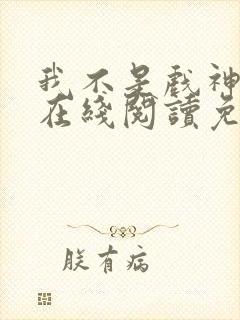 我不是戲神
在綫閱讀免
朕有病